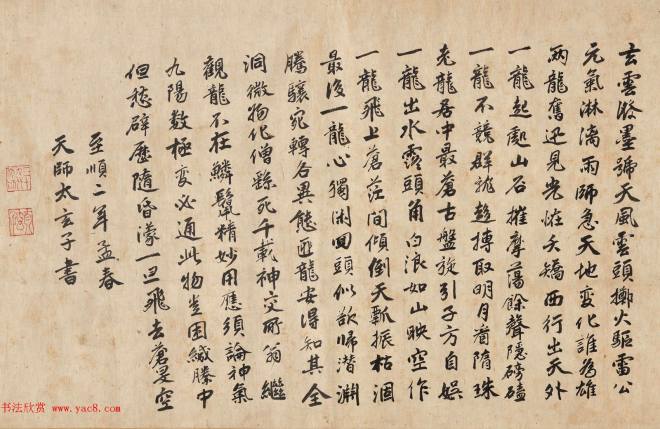 玄雲潑墨號天風雲頭擲火驅雷公
元氣淋漓雨師急天地變化誰為雄
兩龍奮迅見光怪夭矯西行出天外
一龍起處山石摧摩蕩餘聲隱磅礚
一龍不競群龍趍摶取明月當隋珠
老龍居中最蒼古盤旋引子方自娛
一龍出水露頭角白浪如山映空作
一龍飛上蒼茫間傾倒天瓢振枯涸
最後一龍心獨閑回頭似欲歸潛淵
騰驤宛轉各異態匪龍安得知其全
洞微物化僧繇死千載神交所翁繼
觀龍不在鱗鬣精妙用應須論神氣
九陽數極變必通此物豈困緘縢中
但愁霹靂隨昏濛一旦飛去蒼旻空
至順二年孟春
天師太玄子書
书法欣赏 www.yac8.com